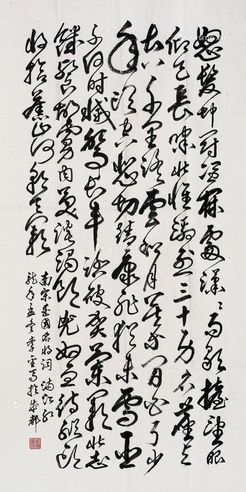 怒髮衝冠憑欄處瀟瀟雨歇抬望眼
仰天長嘯壯懷激烈三十功名塵與
土八千里路雲和月莫等閒白了少
年頭空悲切靖康恥猶未雪臣
子恨何時滅駕長車踏破賀蘭山缺壯志
飢餐胡虜肉笑談渴飲匈奴血待從頭
收拾舊山河朝天闕
南宋名將詞滿江紅
龍年孟冬李書於成都